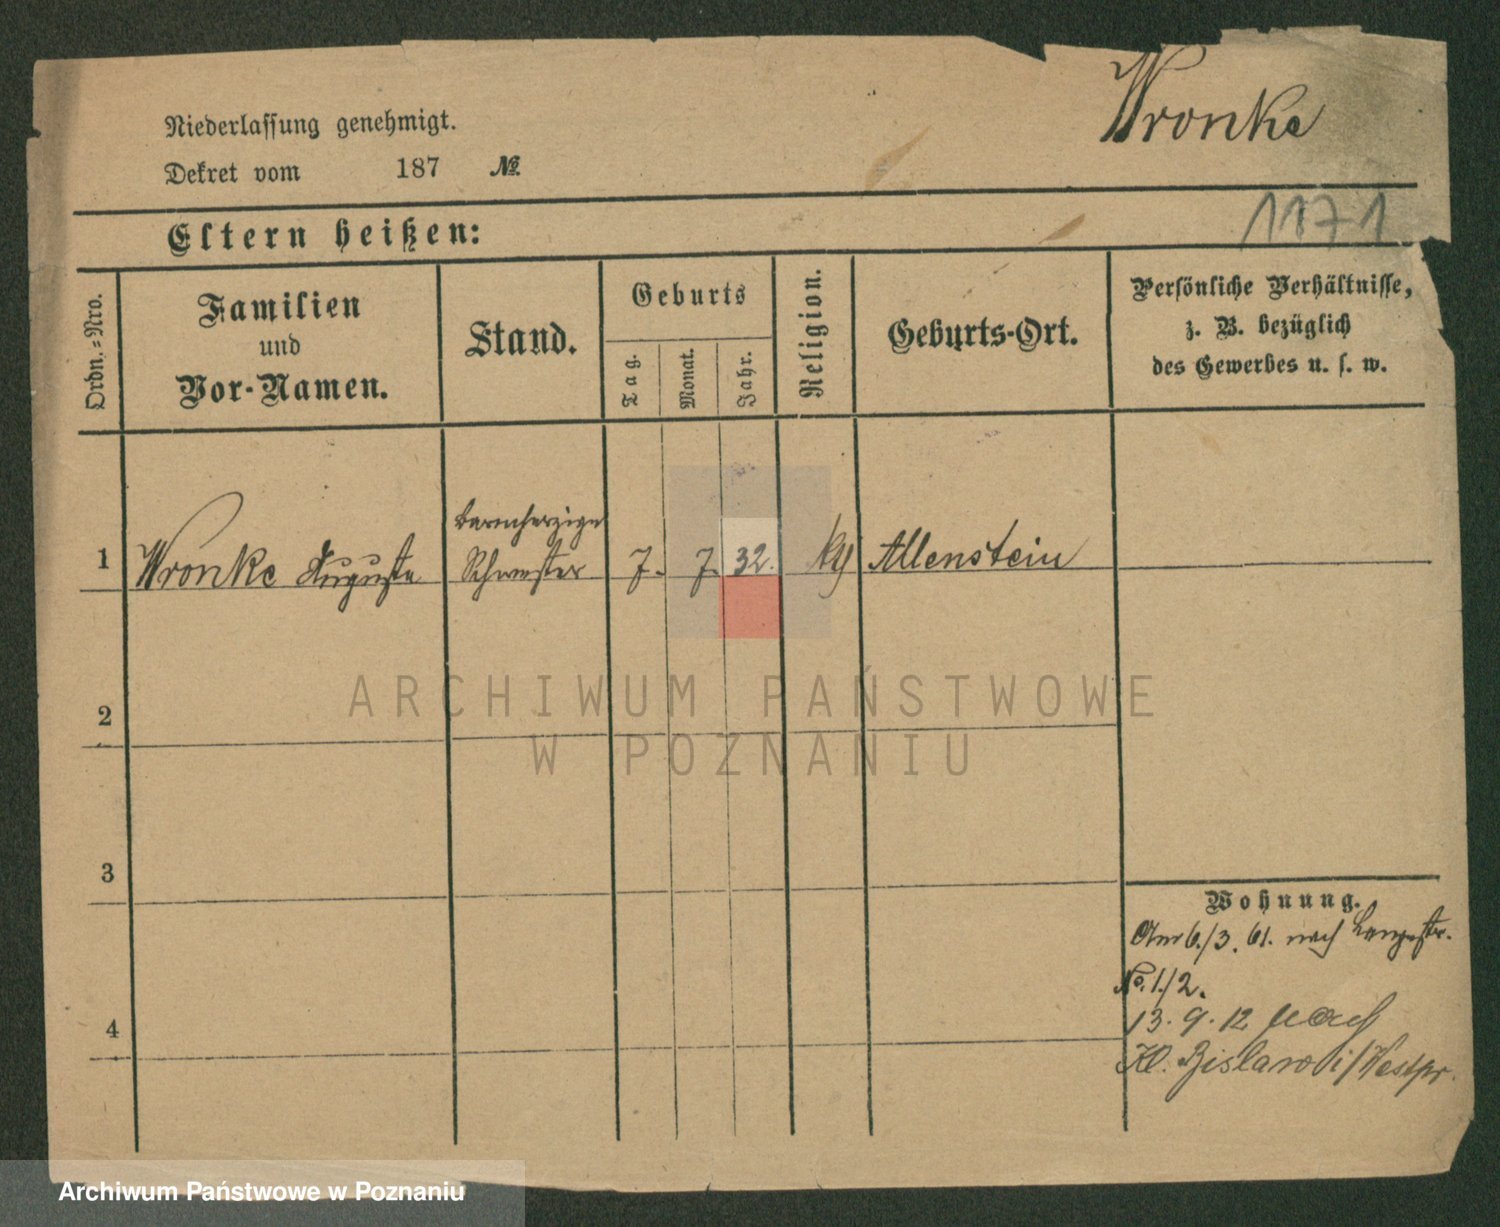 Wronke
Niederlassung genehmigt.
Dekret vom 187 №
1171
Eltern heißen:
Ordn.=Nro.
Familien
und
Vor-Namen.
Stand.
Geburts
Tag.
Monat.
Jahr.
Religion.
Geburts-Ort.
Persönliche Verhältnisse,
z. B. bezüglich
des Gewerbes u. s. w.
barmherzige
1 Wronke Auguste Schwester 7. 7. 32. Allenstein
2
3
4
Wohnung.
Am 6./3. 61. nach Langestr.
No. 1./2.
13. 9. 12 nach
Kl. Bislaw i/Westpr.
ARCHIWUM PAŃSTWOWE
W POZNANIU
Archiwum Państwowe w Poznaniu